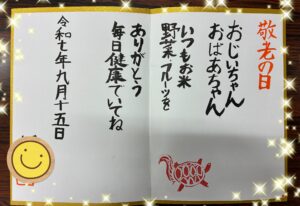 敬老の日
おじいちゃん
おばあちゃん
いつもお米
野菜フルーツを
ありがとう
毎日健康でいてね
令和七年九月十五日